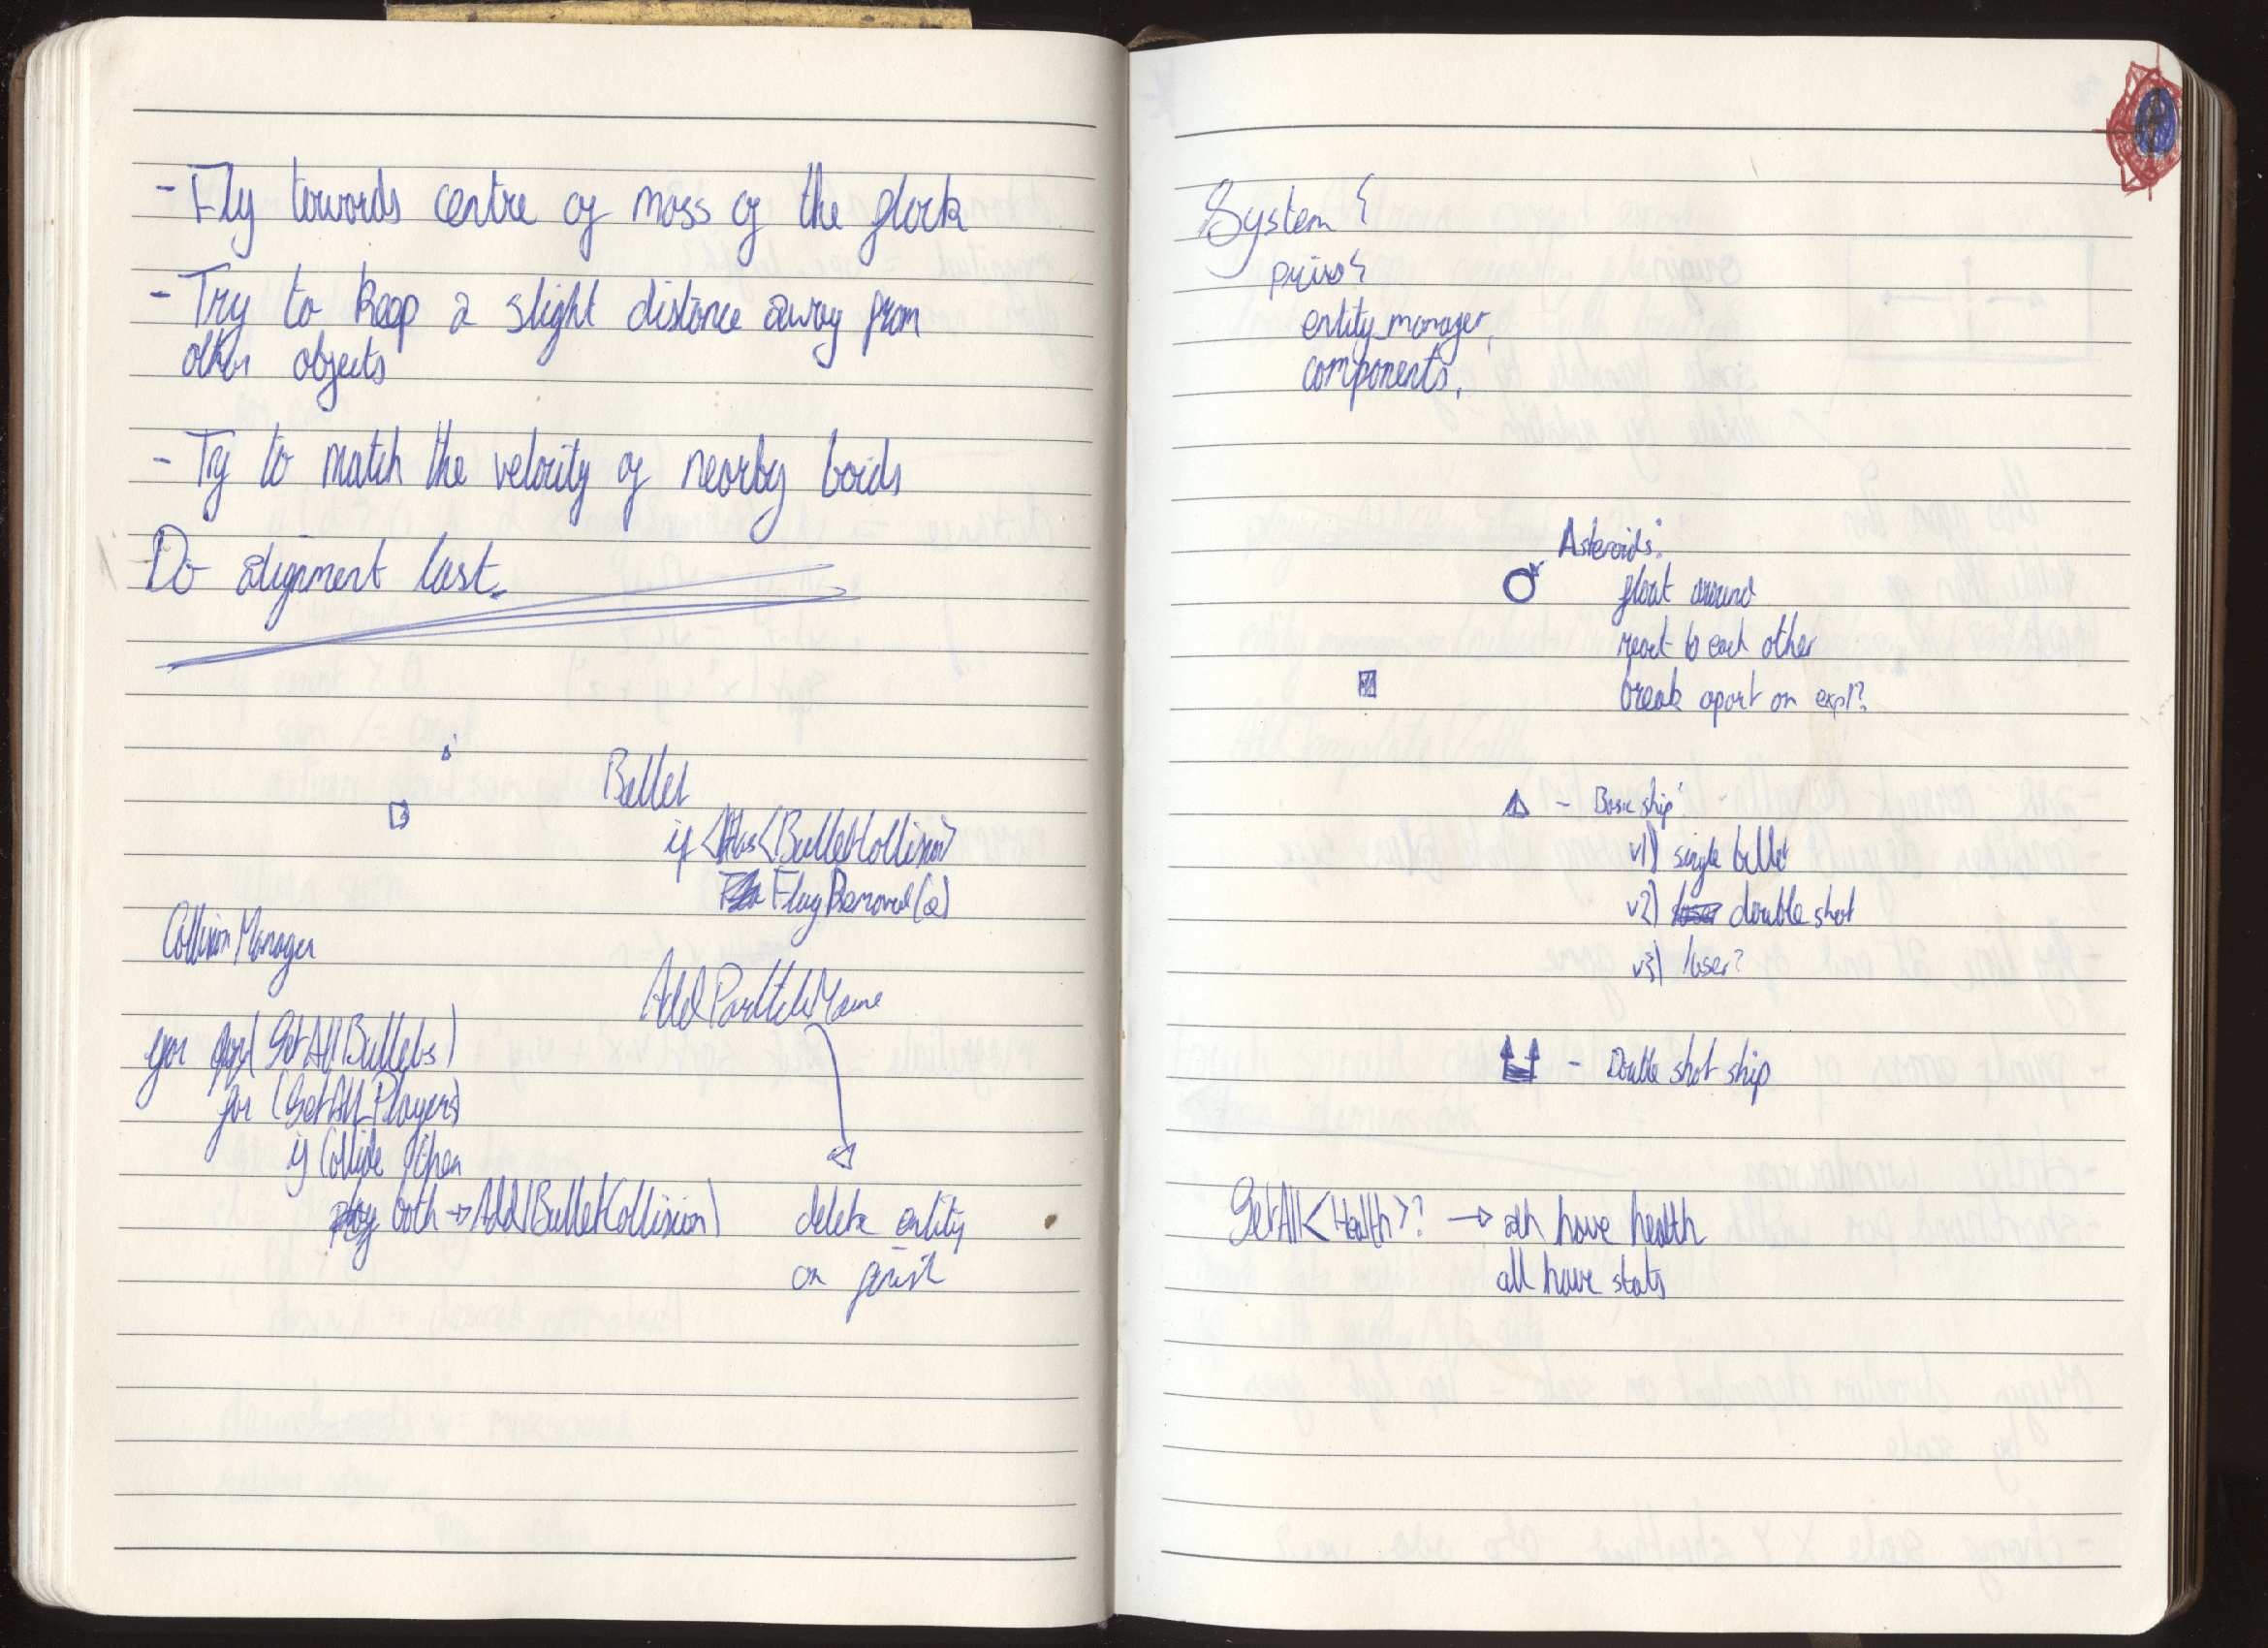 - Fly towards centre of mass of the flock
- Try to keep a slight distance away from
other objects
- Try to match the velocity of nearby boids
Do alignment last.
Bullet
if <Has<BulletCollision>
FlagRemoval(e)
Collision Manager
AddParticle
for (GetAllBullets)
for (GetAllPlayers)
if Collide then
both → Add(BulletCollision)
delete entity
on finish
System {
priv {
entity_manager,
components,
Asteroids:
float around
react to each other
break apart on expl?
- Basic ship
v1) single bullet
v2) double shot
v3) laser?
- Double shot ship
GetAll<Health>? → all have health
all have stats